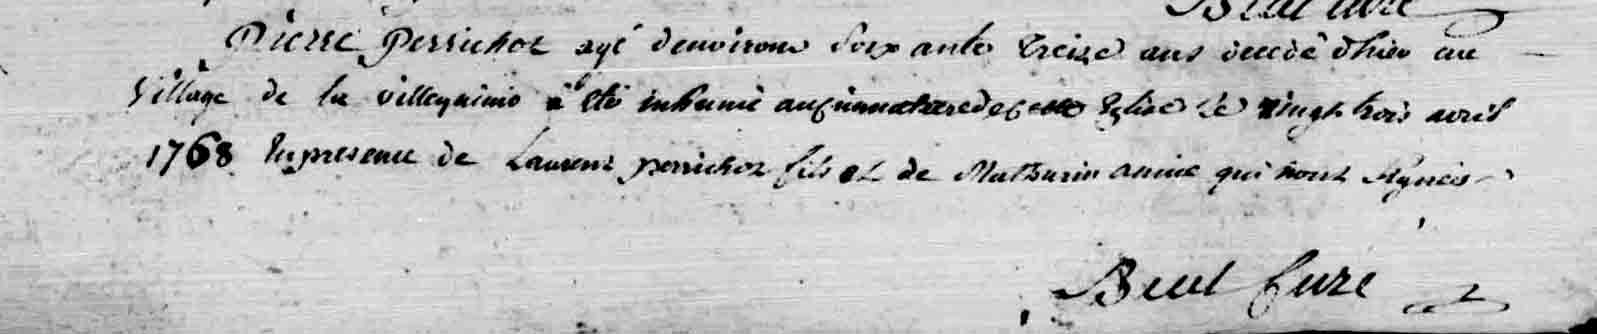 Pierre Perrichot agé denvirons Soixante treize ans decedé dhier au
Village de la villequinio à été inhumé au cimmetiere de cette Eglise le vingt trois avril
1768 En presence de Laurent perrichot fils et de Mathurin amice qui nont Signés
curé